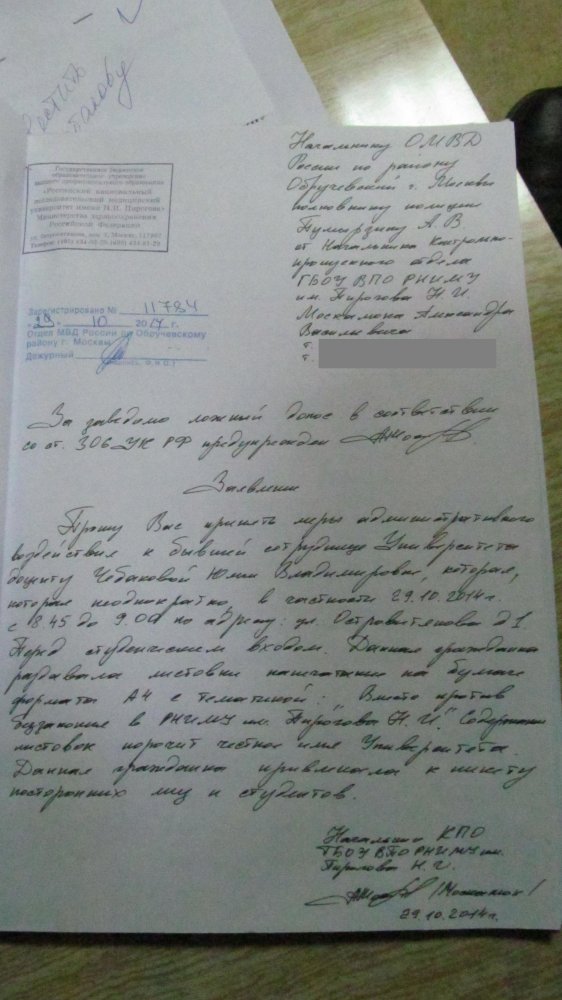 Государственное бюджетное
образовательное учреждение
высшего профессионального образования
«Российский национальный
исследовательский медицинский
университет имени Н.И. Пирогова»
Министерства здравоохранения
Российской Федерации
Начальнику ОМВД
России по району
Обручевский г. Москвы
полковнику полиции
А.В
от Начальника Контрольно-
пропускного отдела
ГБОУ ВПО РНИМУ
им. Пирогова Н.И.
Александра
Васильевича
т.
т.
Зарегистрировано № 11784
«29» 10 2014 г.
Отдел МВД России по Обручевскому
району г. Москвы
Дежурный
За заведомо ложный донос в соответствии
со ст. 306 УК РФ предупрежден
Заявление
Прошу Вас принять меры административного
воздействия к бывшей сотруднице Университета
доценту Чебаковой Юлии Владимировне, которая,
которая неоднократно, в частности 29.10.2014г.
с 8.45 до 9.00 по адресу: ул. Островитянова д 1
Перед студенческим входом. Данная гражданка
раздавала листовки напечатанные на бумаге
формата А4 с тематикой: "Вместе против
беззакония в РНИМУ им. Пирогова Н.И". Содержание
листовок порочит честное имя Университета.
Данная гражданка привлекала к пикету
посторонних лиц и студентов.
Начальник КПО
ГБОУ ВПО РНИМУ им.
Пирогова Н.И.
29.10.2014г.